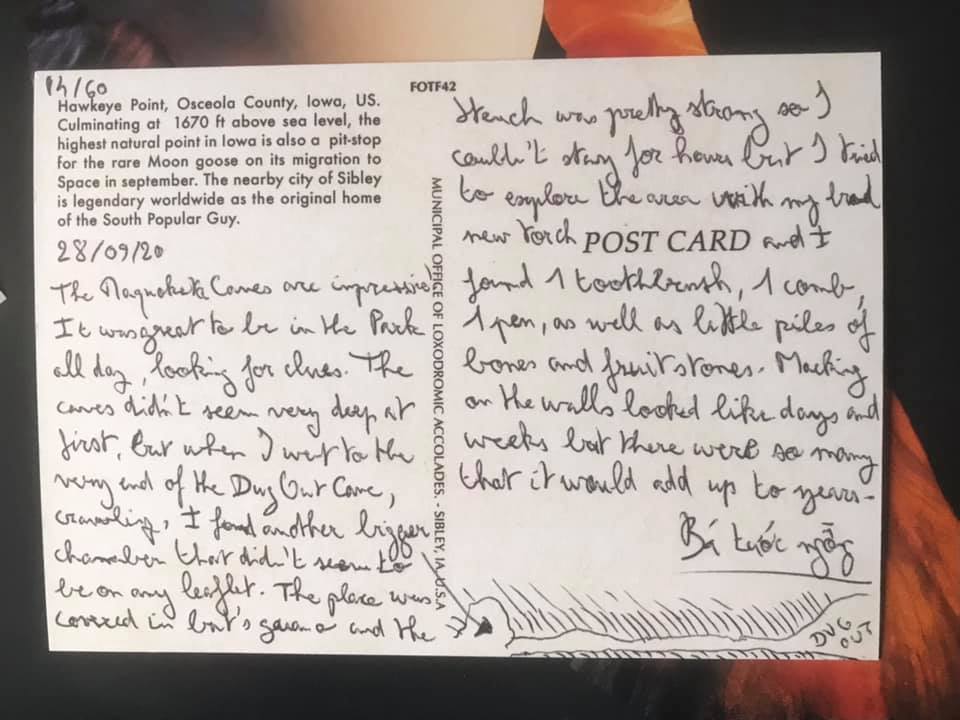 14/60
Hawkeye Point, Osceola County, Iowa, US.
Culminating at 1670 ft above sea level, the
highest natural point in Iowa is also a pit-stop
for the rare Moon goose on its migration to
Space in september. The nearby city of Sibley
is legendary worldwide as the original home
of the South Popular Guy.
28/09/20
The Maquoketa Caves are impressive
It was great to be in the Park
all day, looking for clues. The
caves didn't seem very deep at
first, but when I went to the
very end of the Dug Out Cave,
crawling, I found another bigger
chamber that didn't seem to
be on any leaflet. The place was
covered in bat's guano and the
FOTF42
MUNICIPAL OFFICE OF LOXODROMIC ACCOLADES. - SIBLEY, IA, U.S.A
stench was pretty strong so I
couldn't stay for hours but I tried
to explore the area with my brand
new torch POST CARD and I
found 1 toothbrush, 1 comb,
1 pen, as well as little piles of
bones and fruit stones. Marking
on the walls looked like days and
weeks but there were so many
that it would add up to years-
Bá tước ngỗng
DUG
OUT